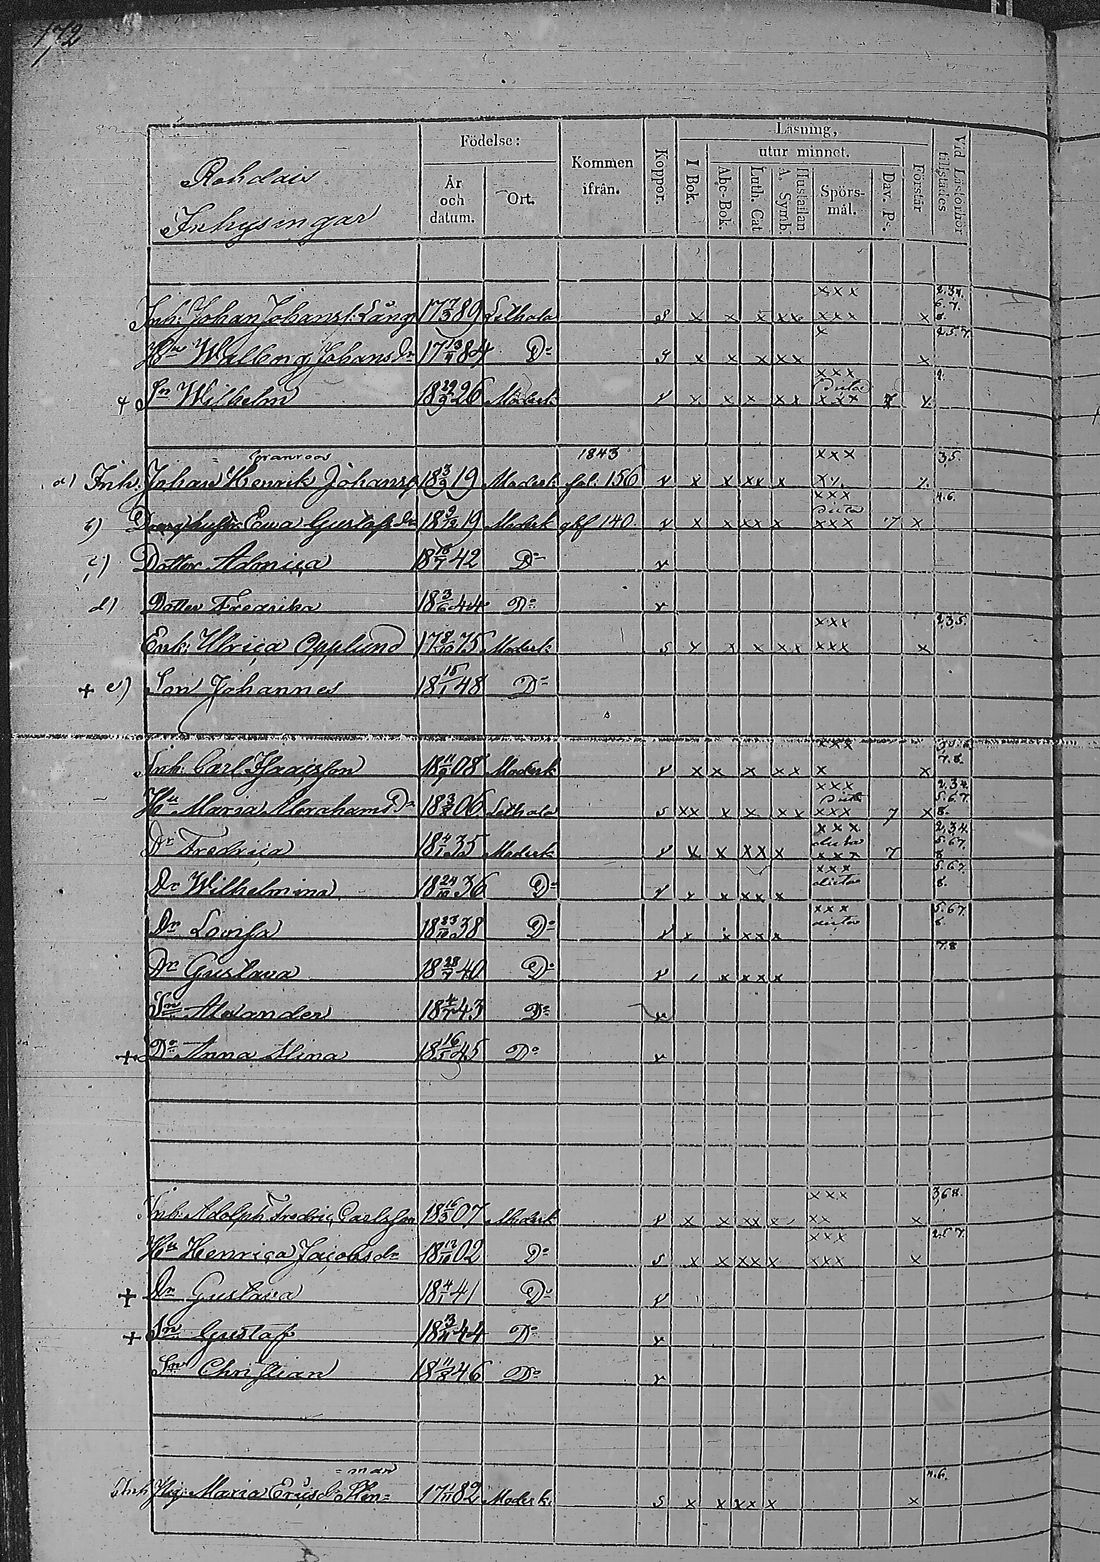 172
Rohdais
Inhysingar
Födelse:
År och datum.
Ort.
Kommen ifrån.
Koppor.
Läsning,
I Bok.
utur minnet.
Abc-Bok.
Luth. Cat
Hustaflan A. Symb.
Spörs-mål.
Dav. Ps.
Förstår
Vid Läsförhör tillstädes
Inh. Johan Johans. Lång 17 7/3 89 Lethala s x x x x x x x x x x 2.3.4. 6.7. 8.
Hu Walborg Johans Dr 17 84 Do s x x x x x x x 2.5.7.
+ Sn Wilhelm 18 29/9 26 Moderk v x x x x x x x x dicta x x x 7 x 2.
Granroos
a) Inh. Johan Henrik Johanss 18 3/9 19 Moderk 1843 fol. 156 v x x x x x x x x 3.5.
b) Ewa Gustafs dr 18 19 Moderk 140 v x x x x x x x x dicta x x x 7 x 4.6.
c) Dotter Admica 18 18/7 42 Do v
d) Dotter Fredrika 18 3/6 44 Do v
Enk. Ulrica Opplund 17 8/10 75 Moderk s x x x x x x x x x x x x 2.3.5.
+ e) Son Johannes 18 15/1 48 Do
Inh. Carl Isacsson 18 11/9 08 Moderk v x x x x x x x x x x 7.8.
Hu Maria Abraham Dr 18 3/2 06 Lethala s x x x x x x x x dicta x x x 7 x 2.3.4. 5.6.7. 8.
Dr Fredrica 18 35 Moderk v x x x x x x x x dicta x x x 7 2.3.4. 5.6.7. 8
Dr Wilhelmina 18 24/10 36 Do v x x x x x x x x dicta 5.6.7. 8.
Dr Lovisa 18 23/10 38 Do v x x x x x x x x dicta 5.6.7. 8.
Dr Gustava 18 28/7 40 Do v x x x x 7.8
Sn Alexander 18 4/7 43 Do v
+ Dr Anna Stina 18 16/5 45 Do v
Inh. Adolph Fredric Carlsson 18 16/3 07 Moderk v x x x x x x x x x x x 3.6.8.
Hu Henrica Jacobs dr 18 13/10 02 Do s x x x x x x x x x x x x 2.5.7.
+ Dr Gustava 18 4/1 41 Do v
+ Sn Gustaf 18 44 Do v
Sn Christian 18 11/8 46 Do v
=man
Pig. Maria Ericsd. Hen= 17 82 Moderk s x x x x x x 4.6.